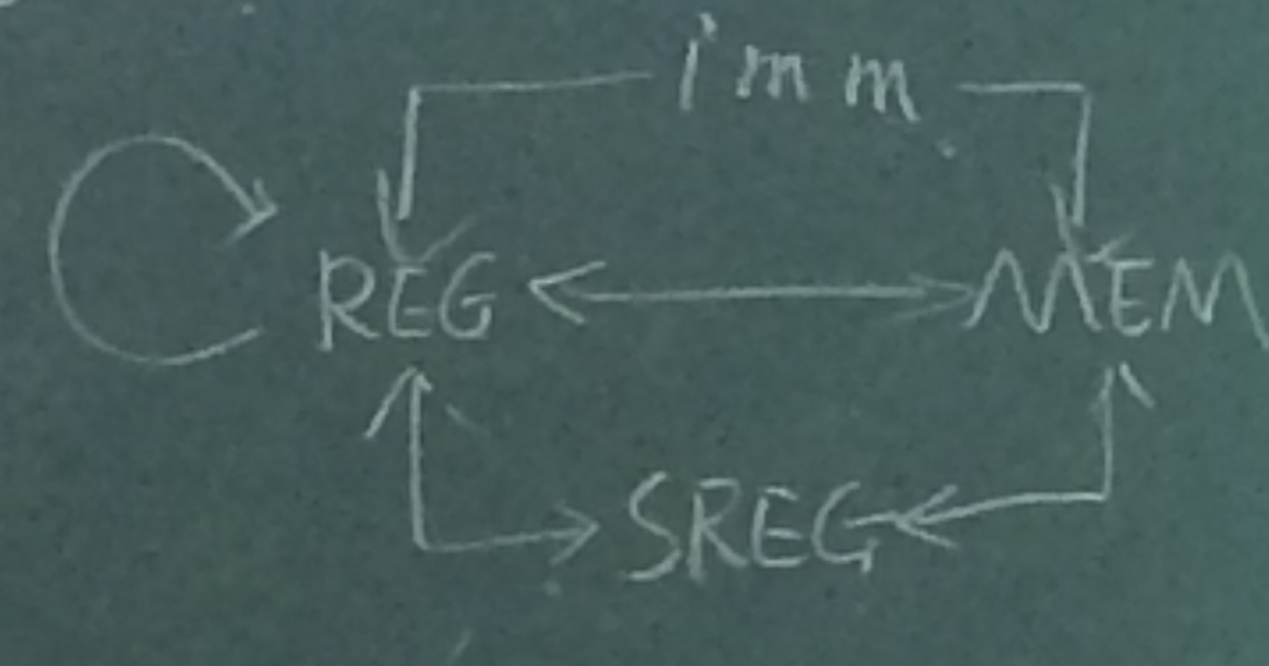 imm
REG MEM
SREG